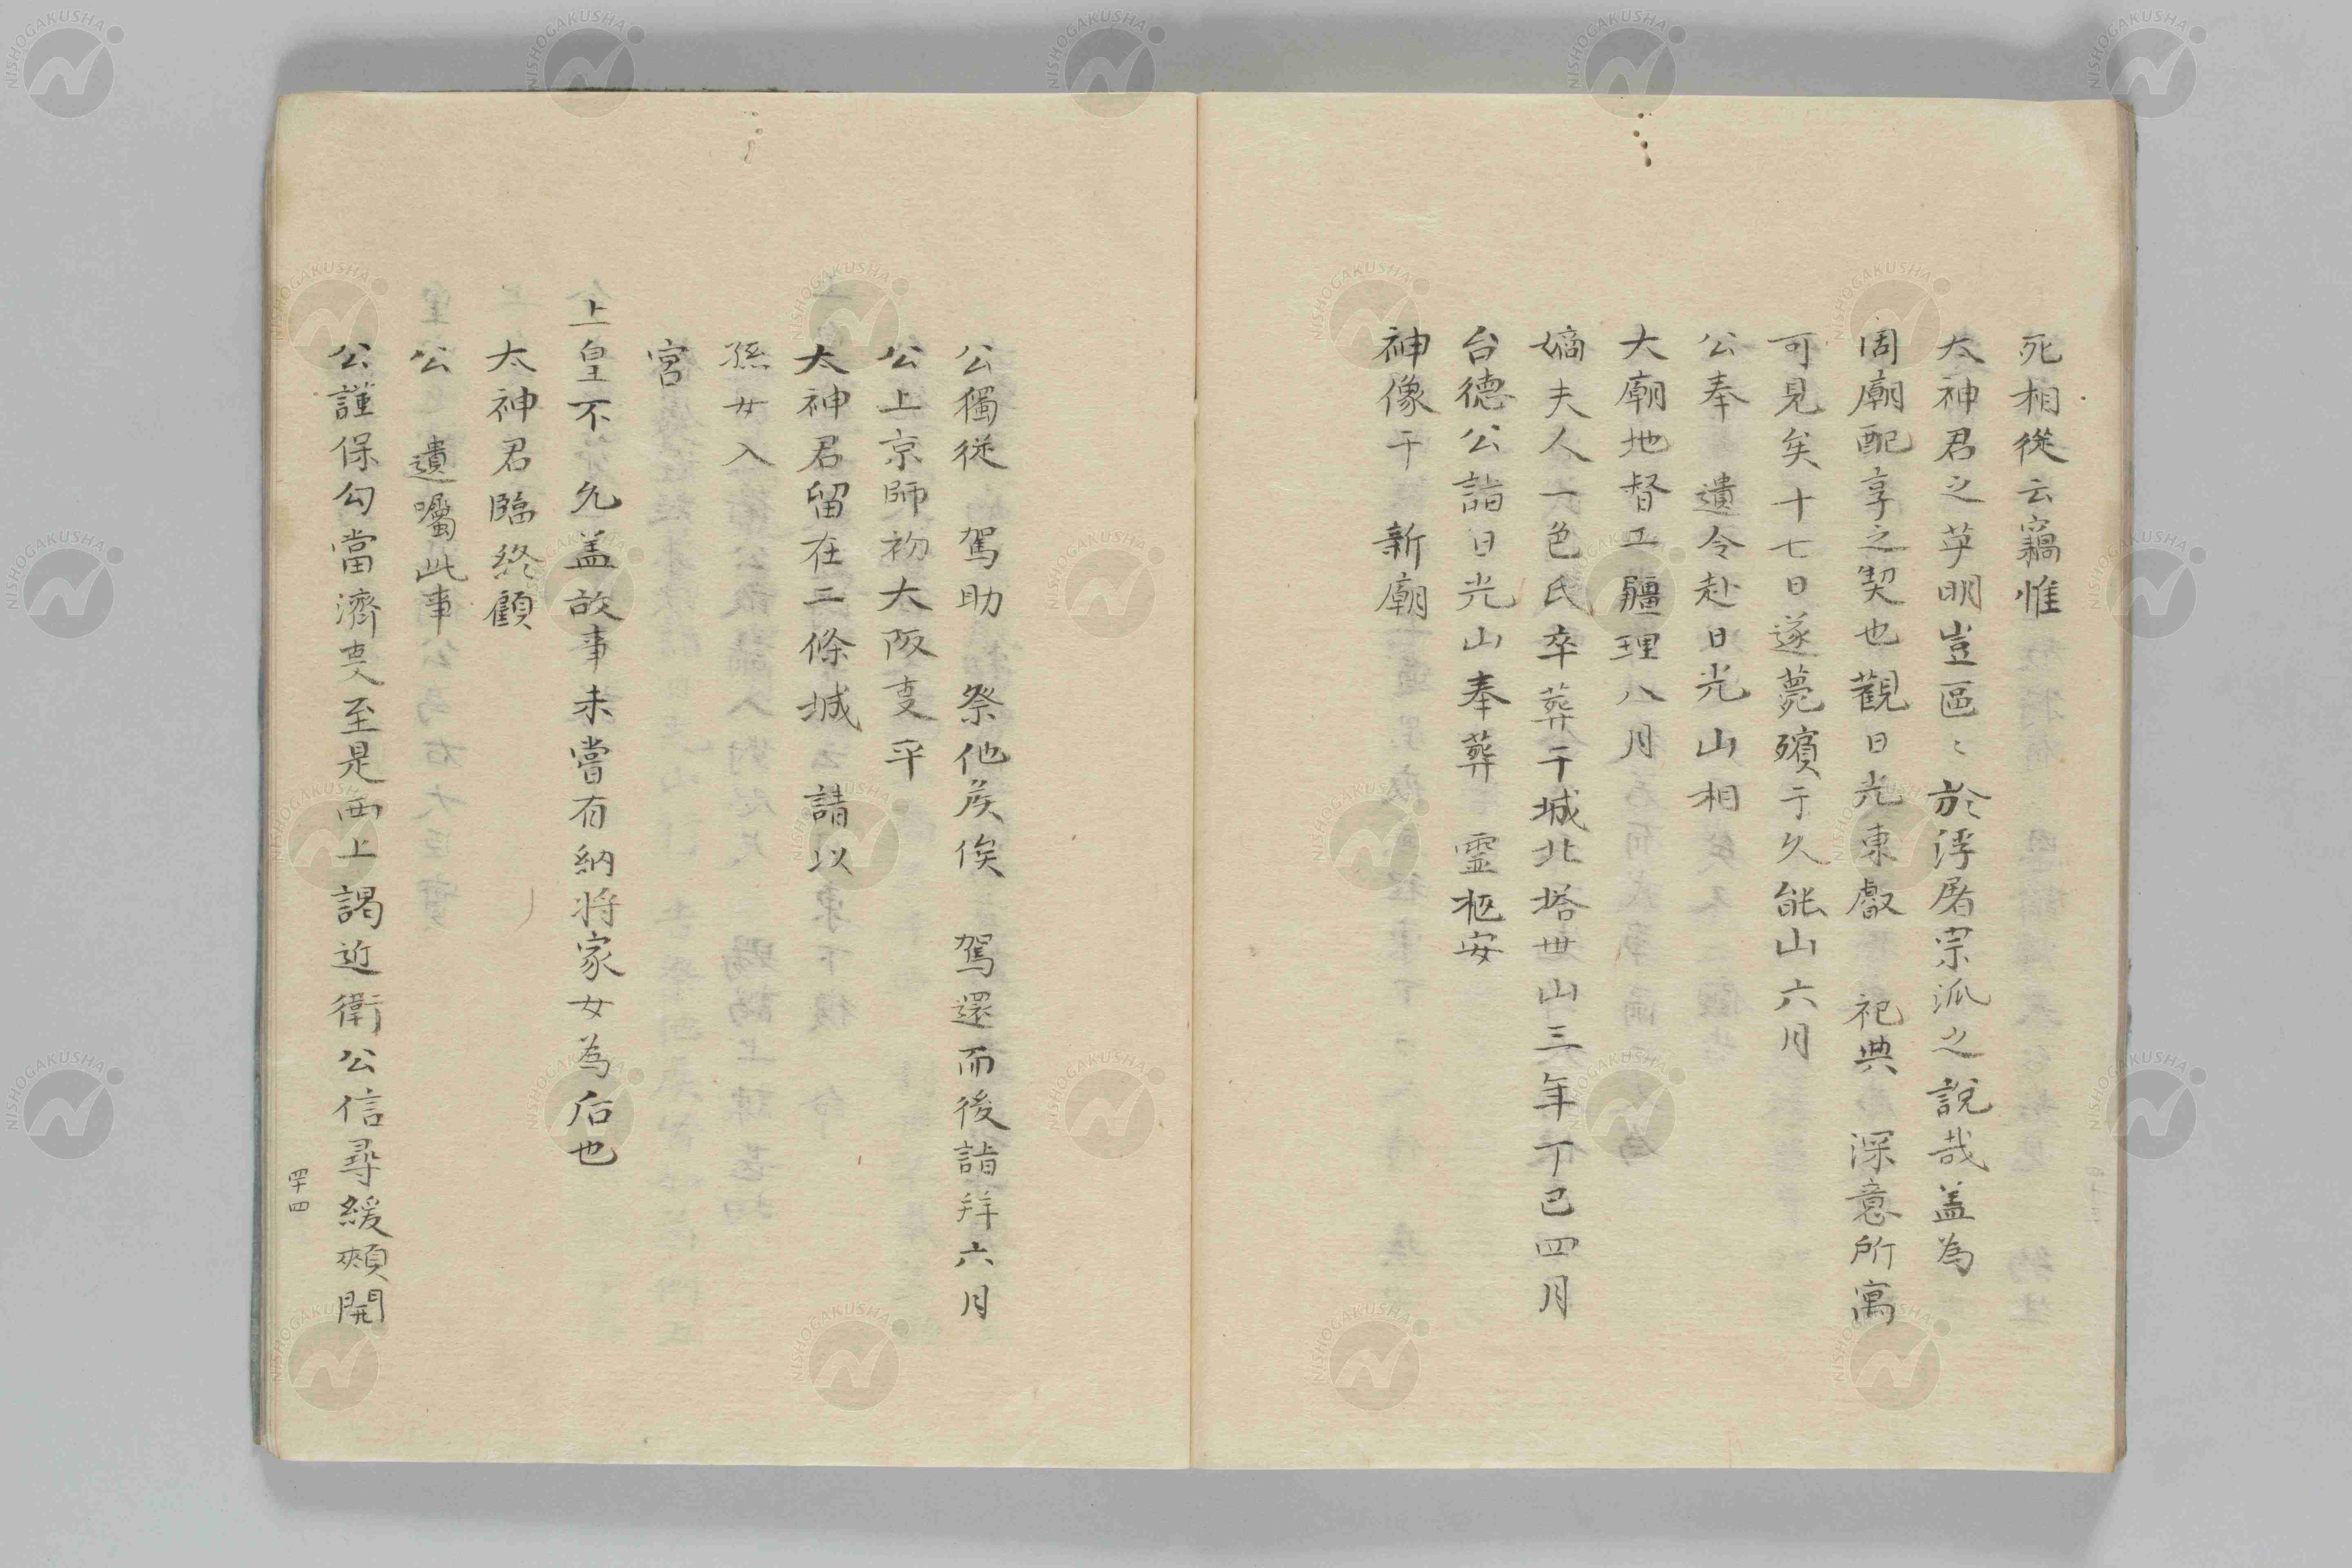 死相從云竊惟
太神君之英明豈區〻於浮屠宗派之說哉盖為
周廟配享之契也觀日光東叡　祀典　深意所寓
可見矣十七日遂薨殯于久能山六月
公奉　遺令赴日光山相
大廟地督工疆理八月
嫡夫人一色氏卒葬于城北塔世山三年丁巳四月
台德公詣日光山奉葬　霊柩安
神像于　新廟
公獨從　駕助　祭他矦俟　駕還而後詣拜六月
公上京師初大阪変平
太神君留在二條城　請以
孫女入
宮
上皇不允盖故事未嘗有納将家女為后也
太神君臨終顧
公　遺囑此事
公謹保勾當濟
至是西上謁近衛公信尋緩頰開
四十四
NISHOGAKUSHA